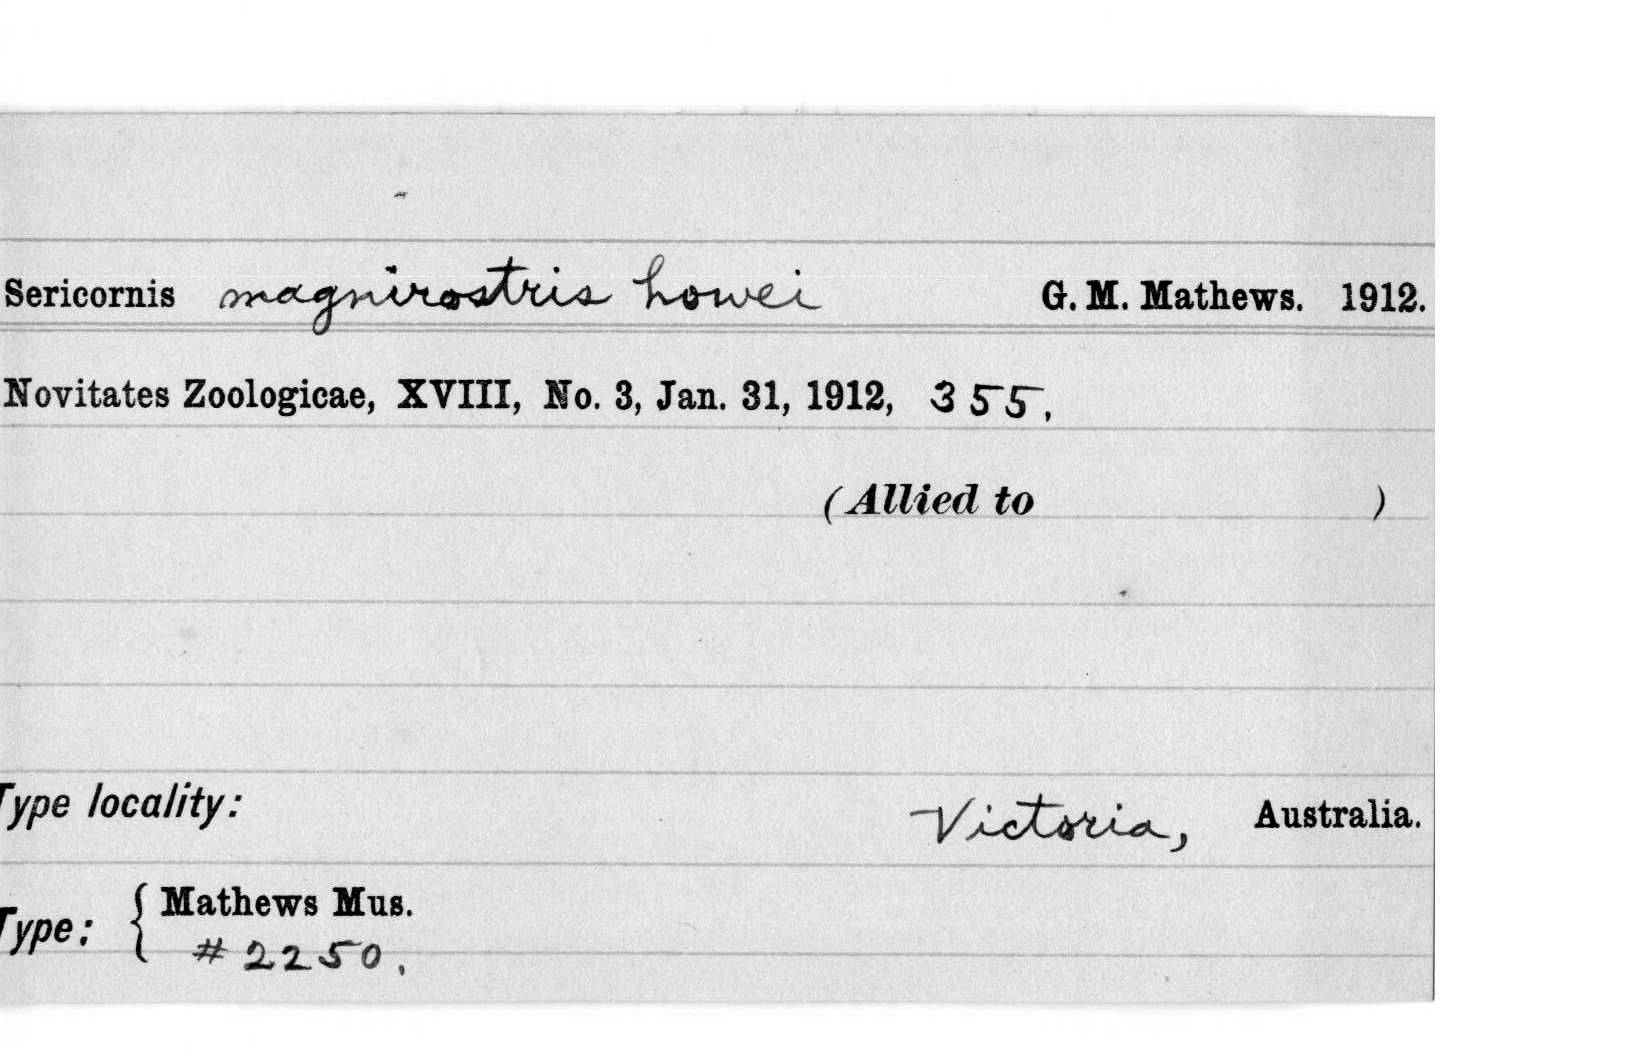 Sericornis magnirostris howei G. M. Mathews. 1912.
Novitates Zoologicae, XVIII, No. 3, Jan. 31, 1912, 355.
(Allied to )
Type locality: Victoria, Australia.
Type: { Mathews Mus.
#2250.